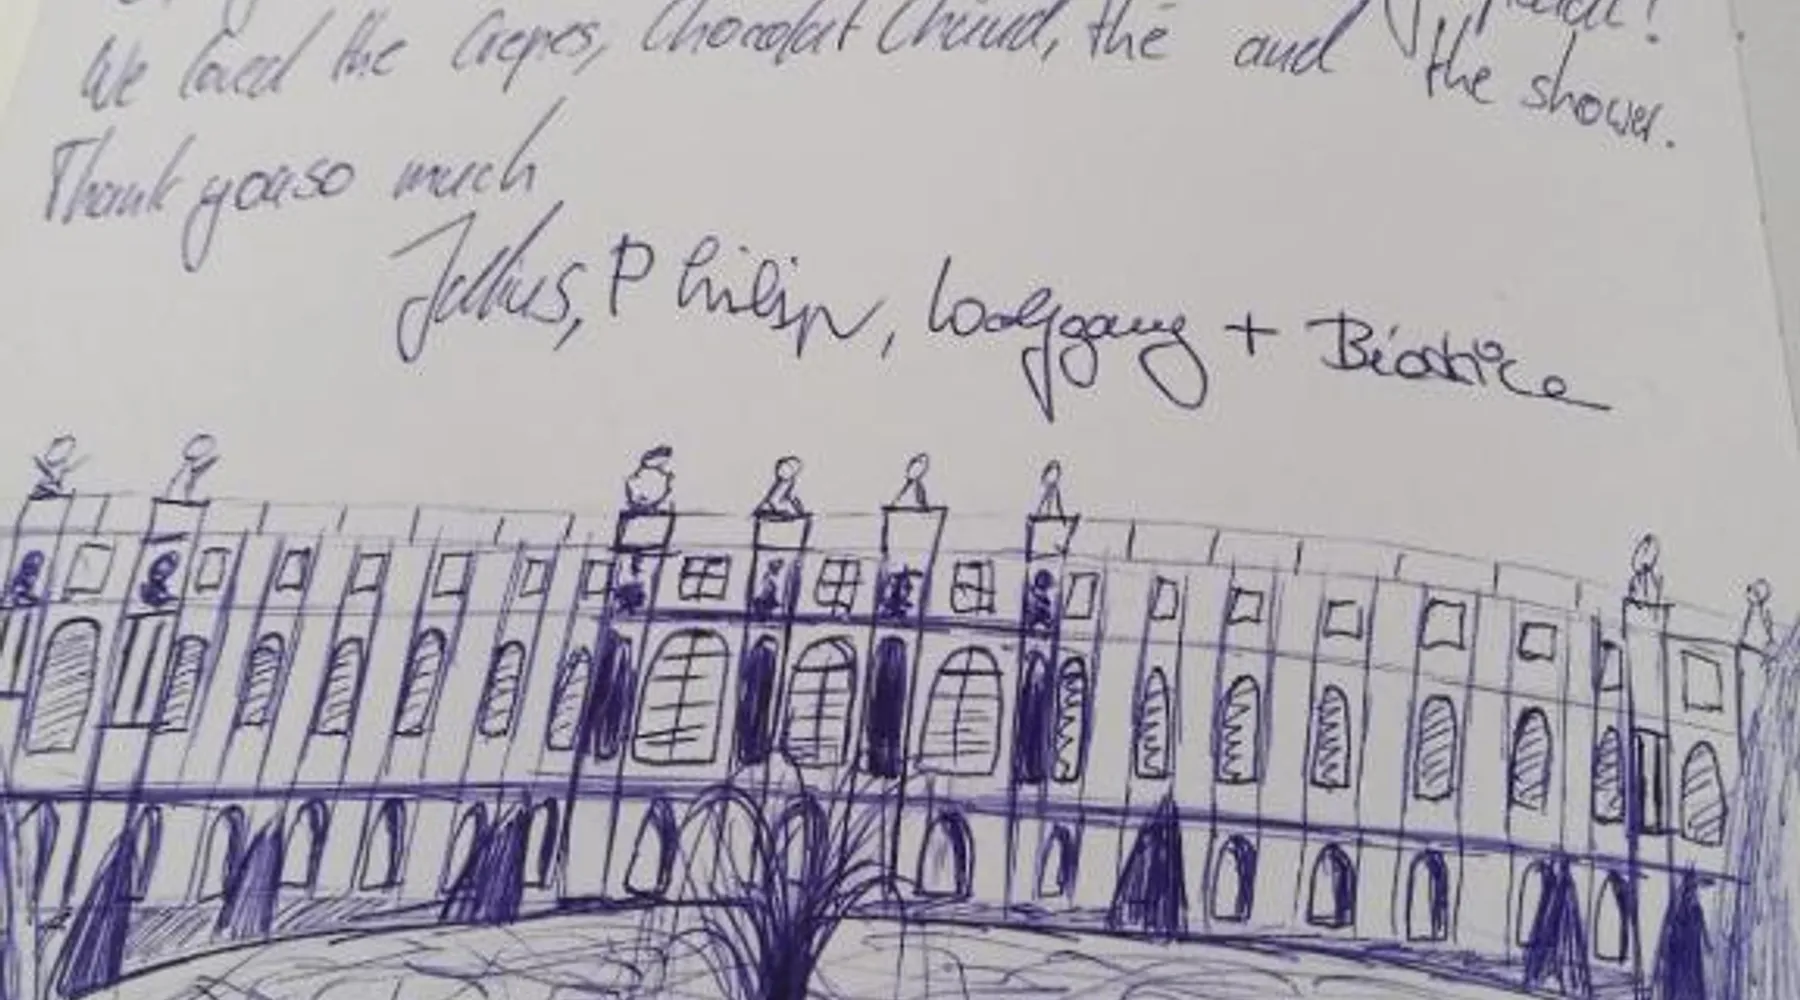 We loved the Crepes, Chocolat Chaud, thé and the shower.
Thank you so much
Julius, Philipp, Wolfgang + Béatrice